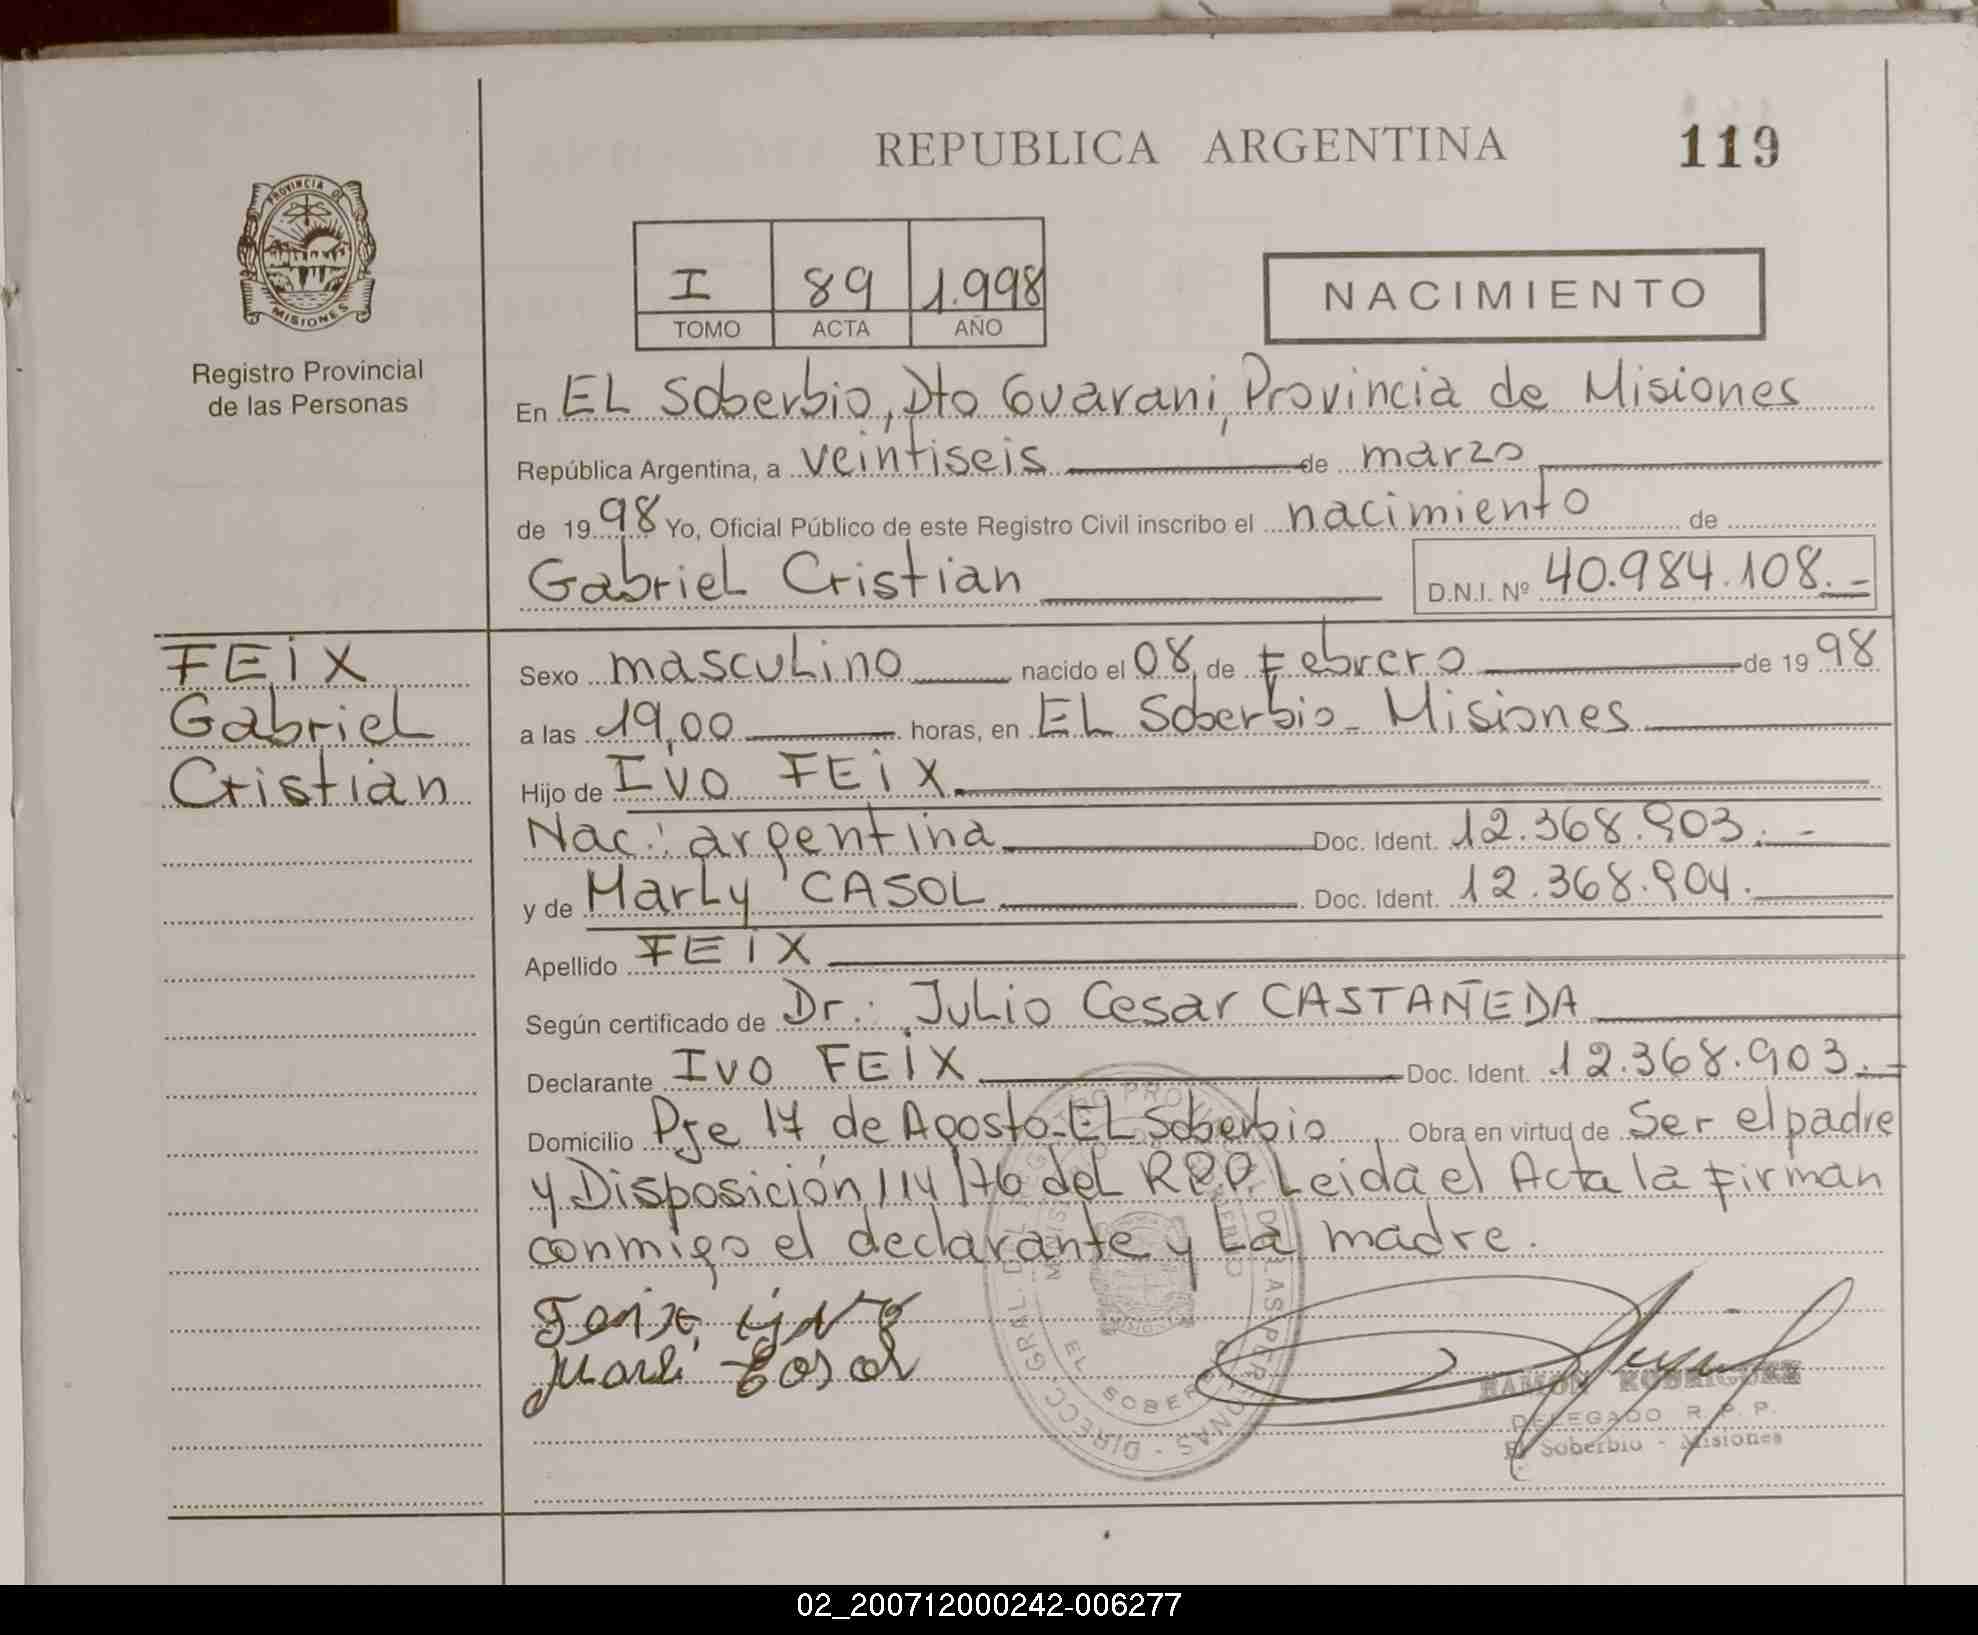 REPUBLICA ARGENTINA
119
PROVINCIA DE
MISIONES
Registro Provincial
de las Personas
I 89 1.998
TOMO ACTA AÑO
NACIMIENTO
En EL Soberbio, Dto Guarani, Provincia de Misiones
República Argentina, a veintiseis de marzo
de 1998 Yo, Oficial Público de este Registro Civil inscribo el nacimiento de
Gabriel Cristian
D.N.I. Nº 40.984.108.-
FEiX
Gabriel
Cristian
Sexo masculino nacido el 08 de Febrero de 1998
a las 19,00 horas, en EL Soberbio - Misiones
Hijo de Ivo FEiX
Nac: argentina Doc. Ident. 12.368.903.-
y de Marly CASOL Doc. Ident. 12.368.904.
Apellido FEiX
Según certificado de Dr. Julio Cesar CASTAÑEDA
Declarante Ivo FEiX Doc. Ident. 12.368.903.-
Domicilio Pje 17 de Agosto-EL Soberbio Obra en virtud de Ser el padre
y Disposición 114/76 del RPP. Leida el Acta la Firman
conmigo el declarante y La madre.
RAMON RODRIGUEZ
DELEGADO R. P. P.
El Soberbio - Misiones
02_200712000242-006277